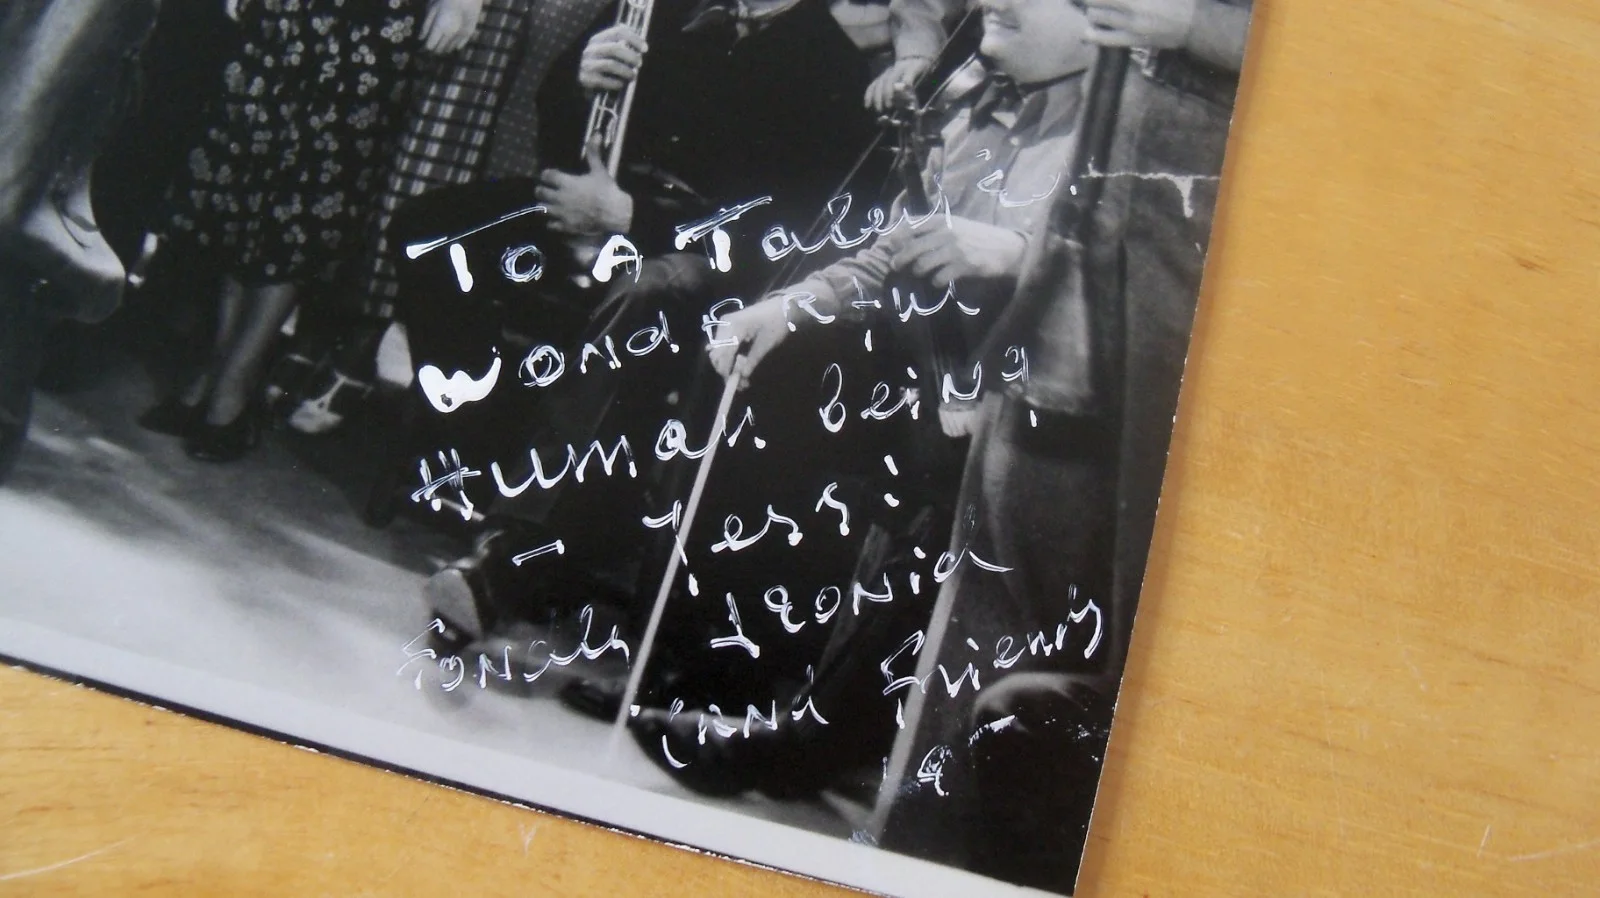 TO A Talented
WONdERful
Human being
- Yess!
Fondly Leonid
(and friends